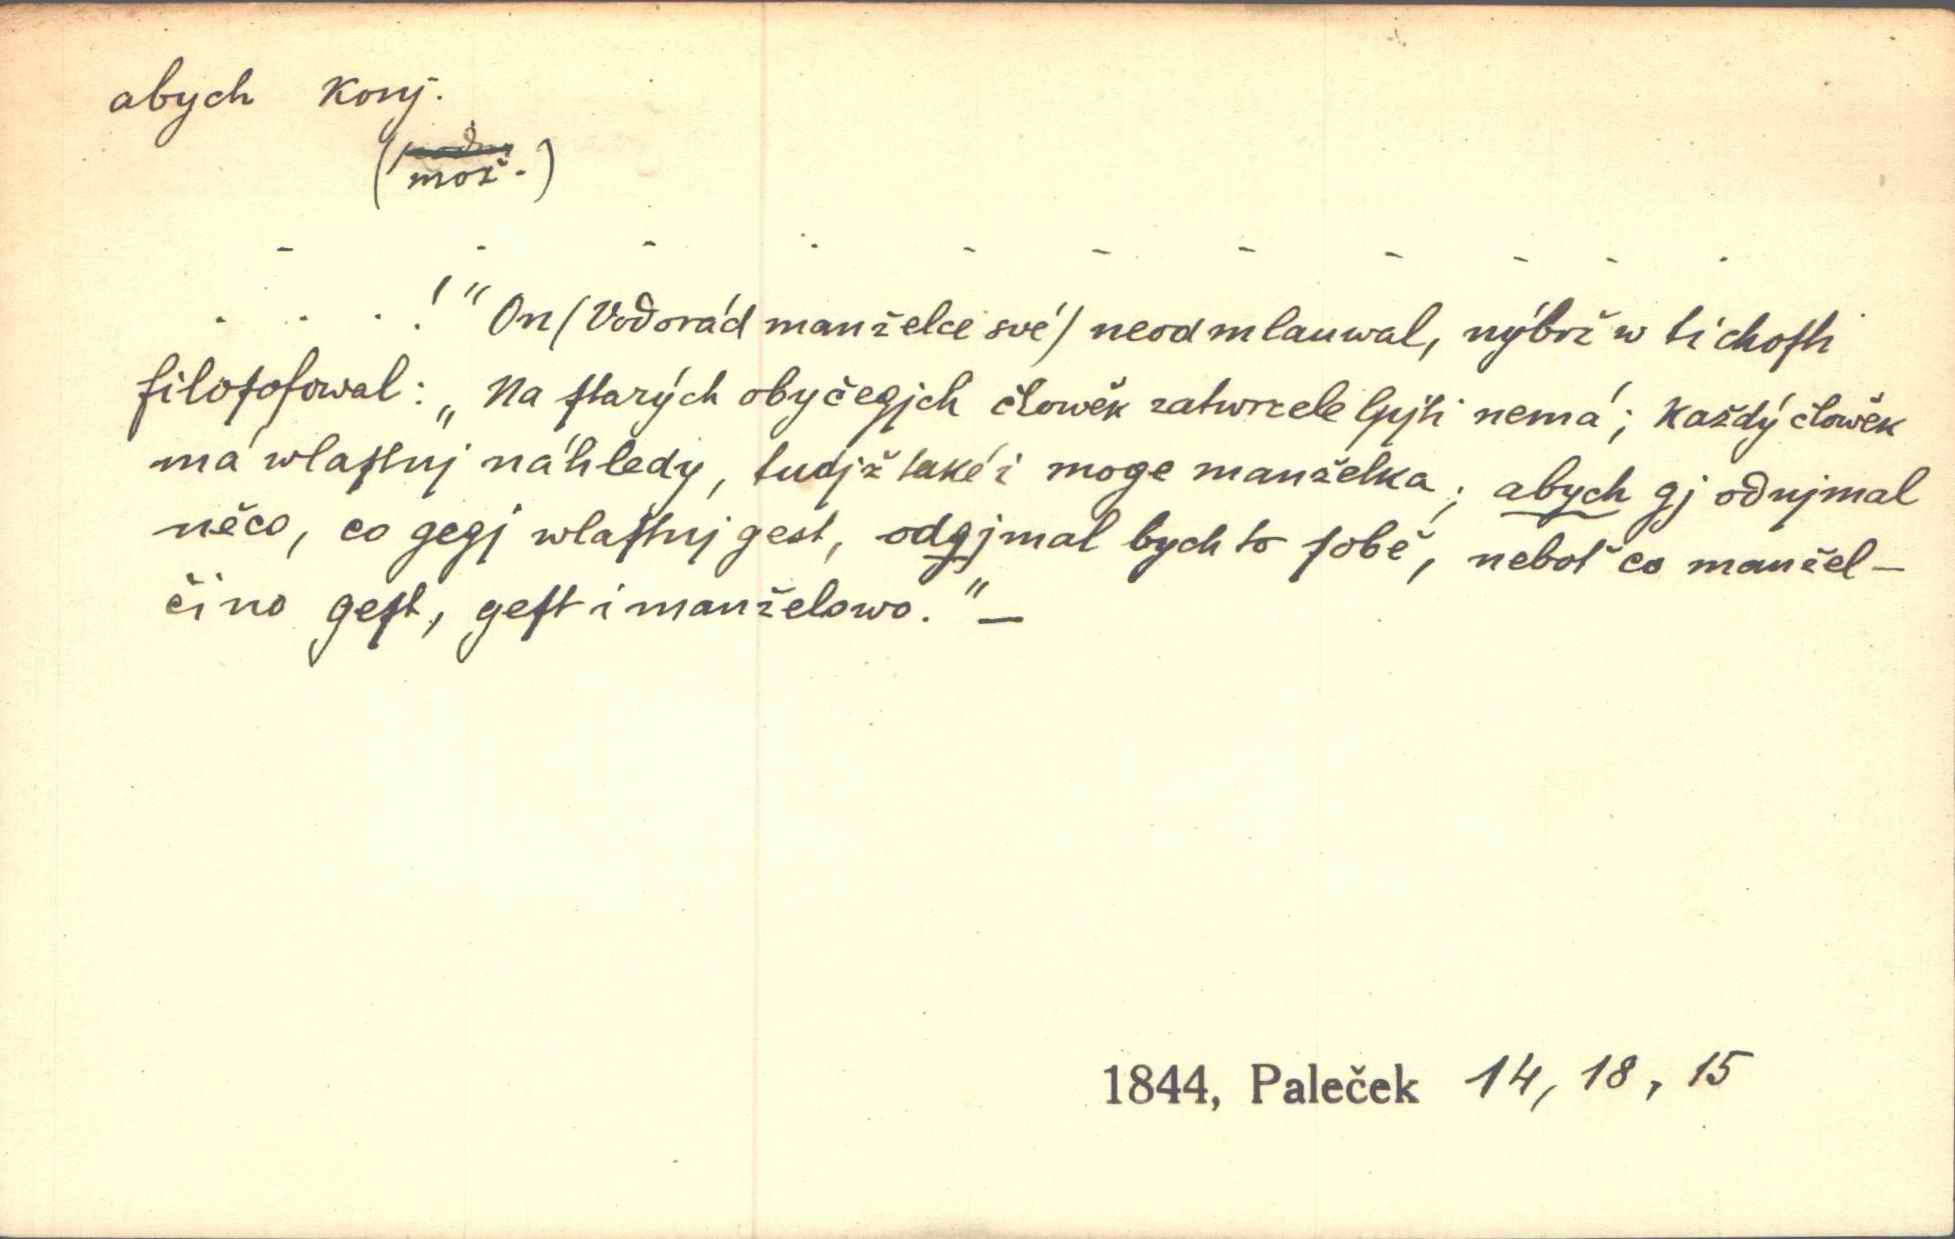 abych konj.
(mož.)
- - - - - - - - - - -
. . . . !“ On (Vodorád manželce své) neodmlauwal, nýbrž w tichoſti
filoſofowal: „Na ſtarých obyčegjch člowěk zatwrzele lpjti nemá; každý člowěk
má wlaſtnj náhledy, tudjž také i moge manželka; abych gj odnjmal
něco, co gegj wlaſtnj gest, odgjmal bych to ſobě, neboť co manžel-
čino geſt, geſt i manželowo.“ —
1844, Paleček 14, 18, 15